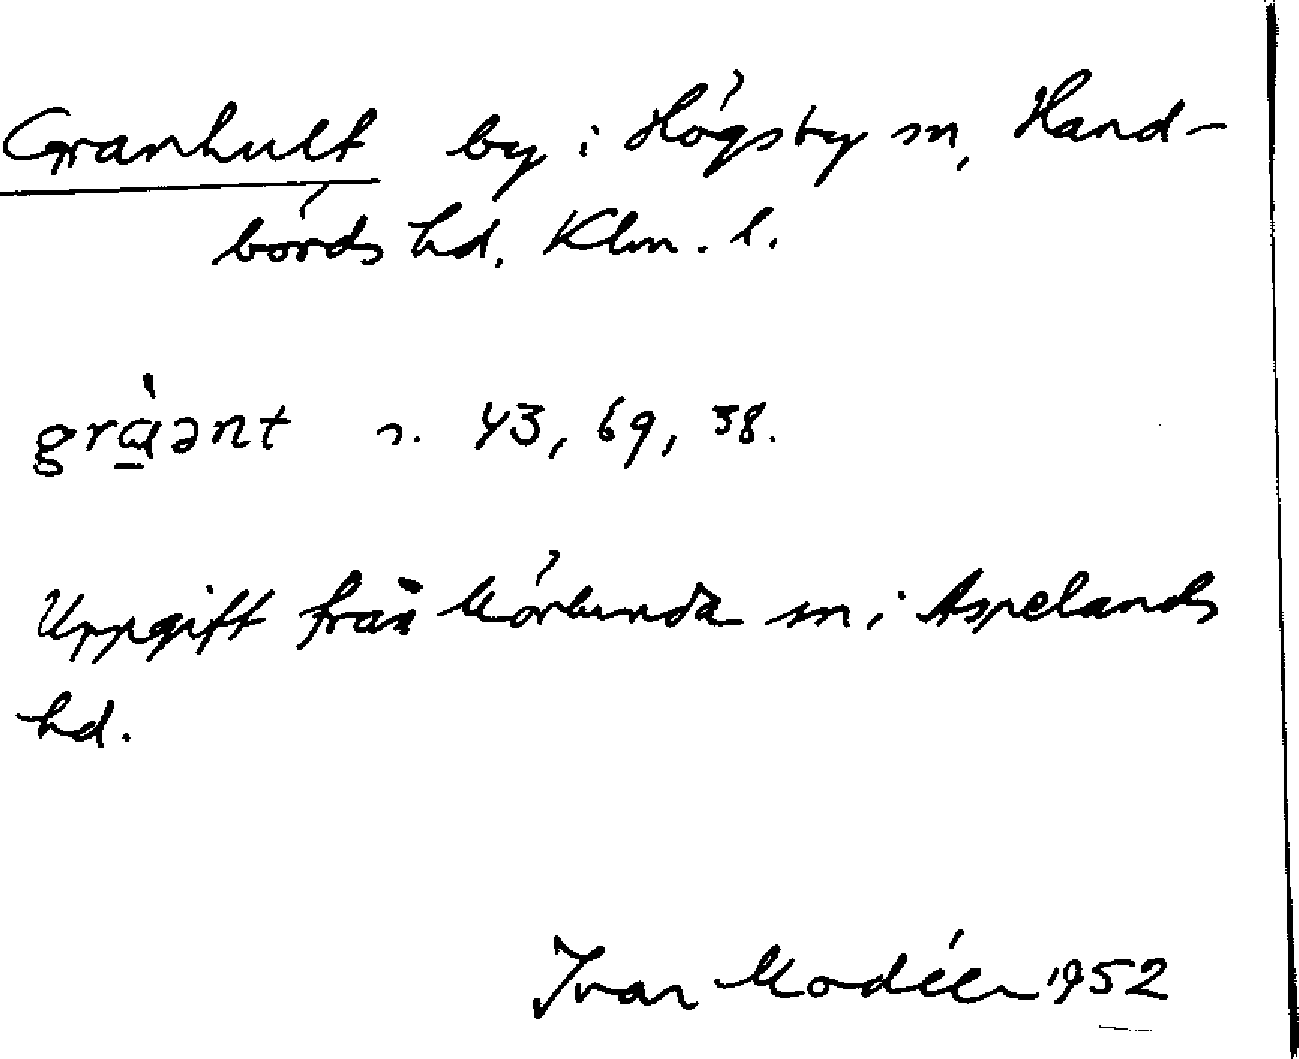 Granhult by i Högsby sn, Hand-
börds hd. Klm. l.
grɑ̀ənt n. 43, 69, 38.
Uppgift från Mörlunda sn i Aspelands
hd.
Ivar Modéer 1952